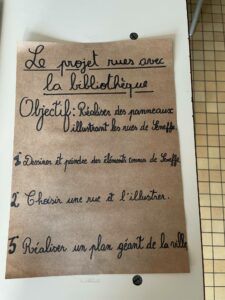 Le projet rues avec
la bibliothèque
Objectif: Réaliser des panneaux
illustrant les rues de Seneffe.
1 Dessiner et peindre des éléments connus de Seneffe.
2 Choisir une rue et l'illustrer.
3 Réaliser un plan géant de la ville